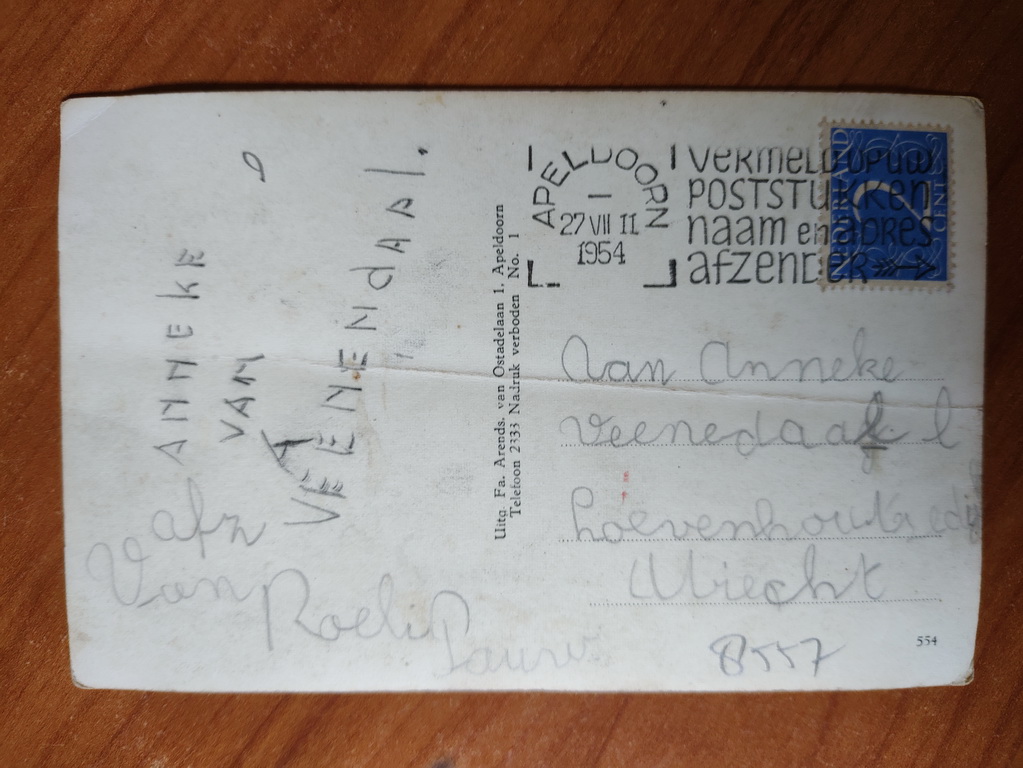 ANNEKE
VAN
VEENENdAAL.
afz
Van Roelie
Uitg. Fa. Arends. van Ostadelaan 1, Apeldoorn
Telefoon 2333 Nadruk verboden No. 1
APELDOORN
1
27 VII 11
1954
VERMELD OP UW
POSTSTUKKEN
naam en adres
afzender
NEDERLAND
2
CENT
Aan Anneke
Veenedaal
Utrecht
8557
554